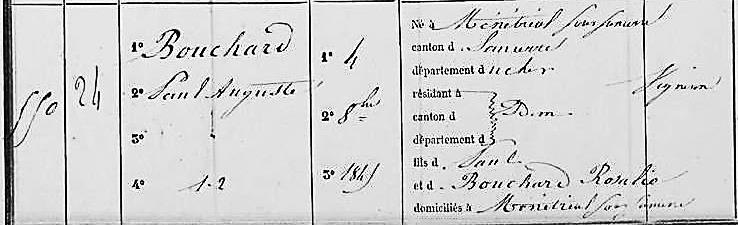 550
24
1º Bouchard
2º Paul Auguste
3º
4º 1-2
1º 4
2º 8bre
3º 1845
Né à Ménétréol sous Sancerre
canton d Sancerre
département du cher
résidant à
canton d Idem.
département d
fils d Paul
et d Bouchard Rosalie
domiciliés à Ménétréol sous Sancerre
Vigneron